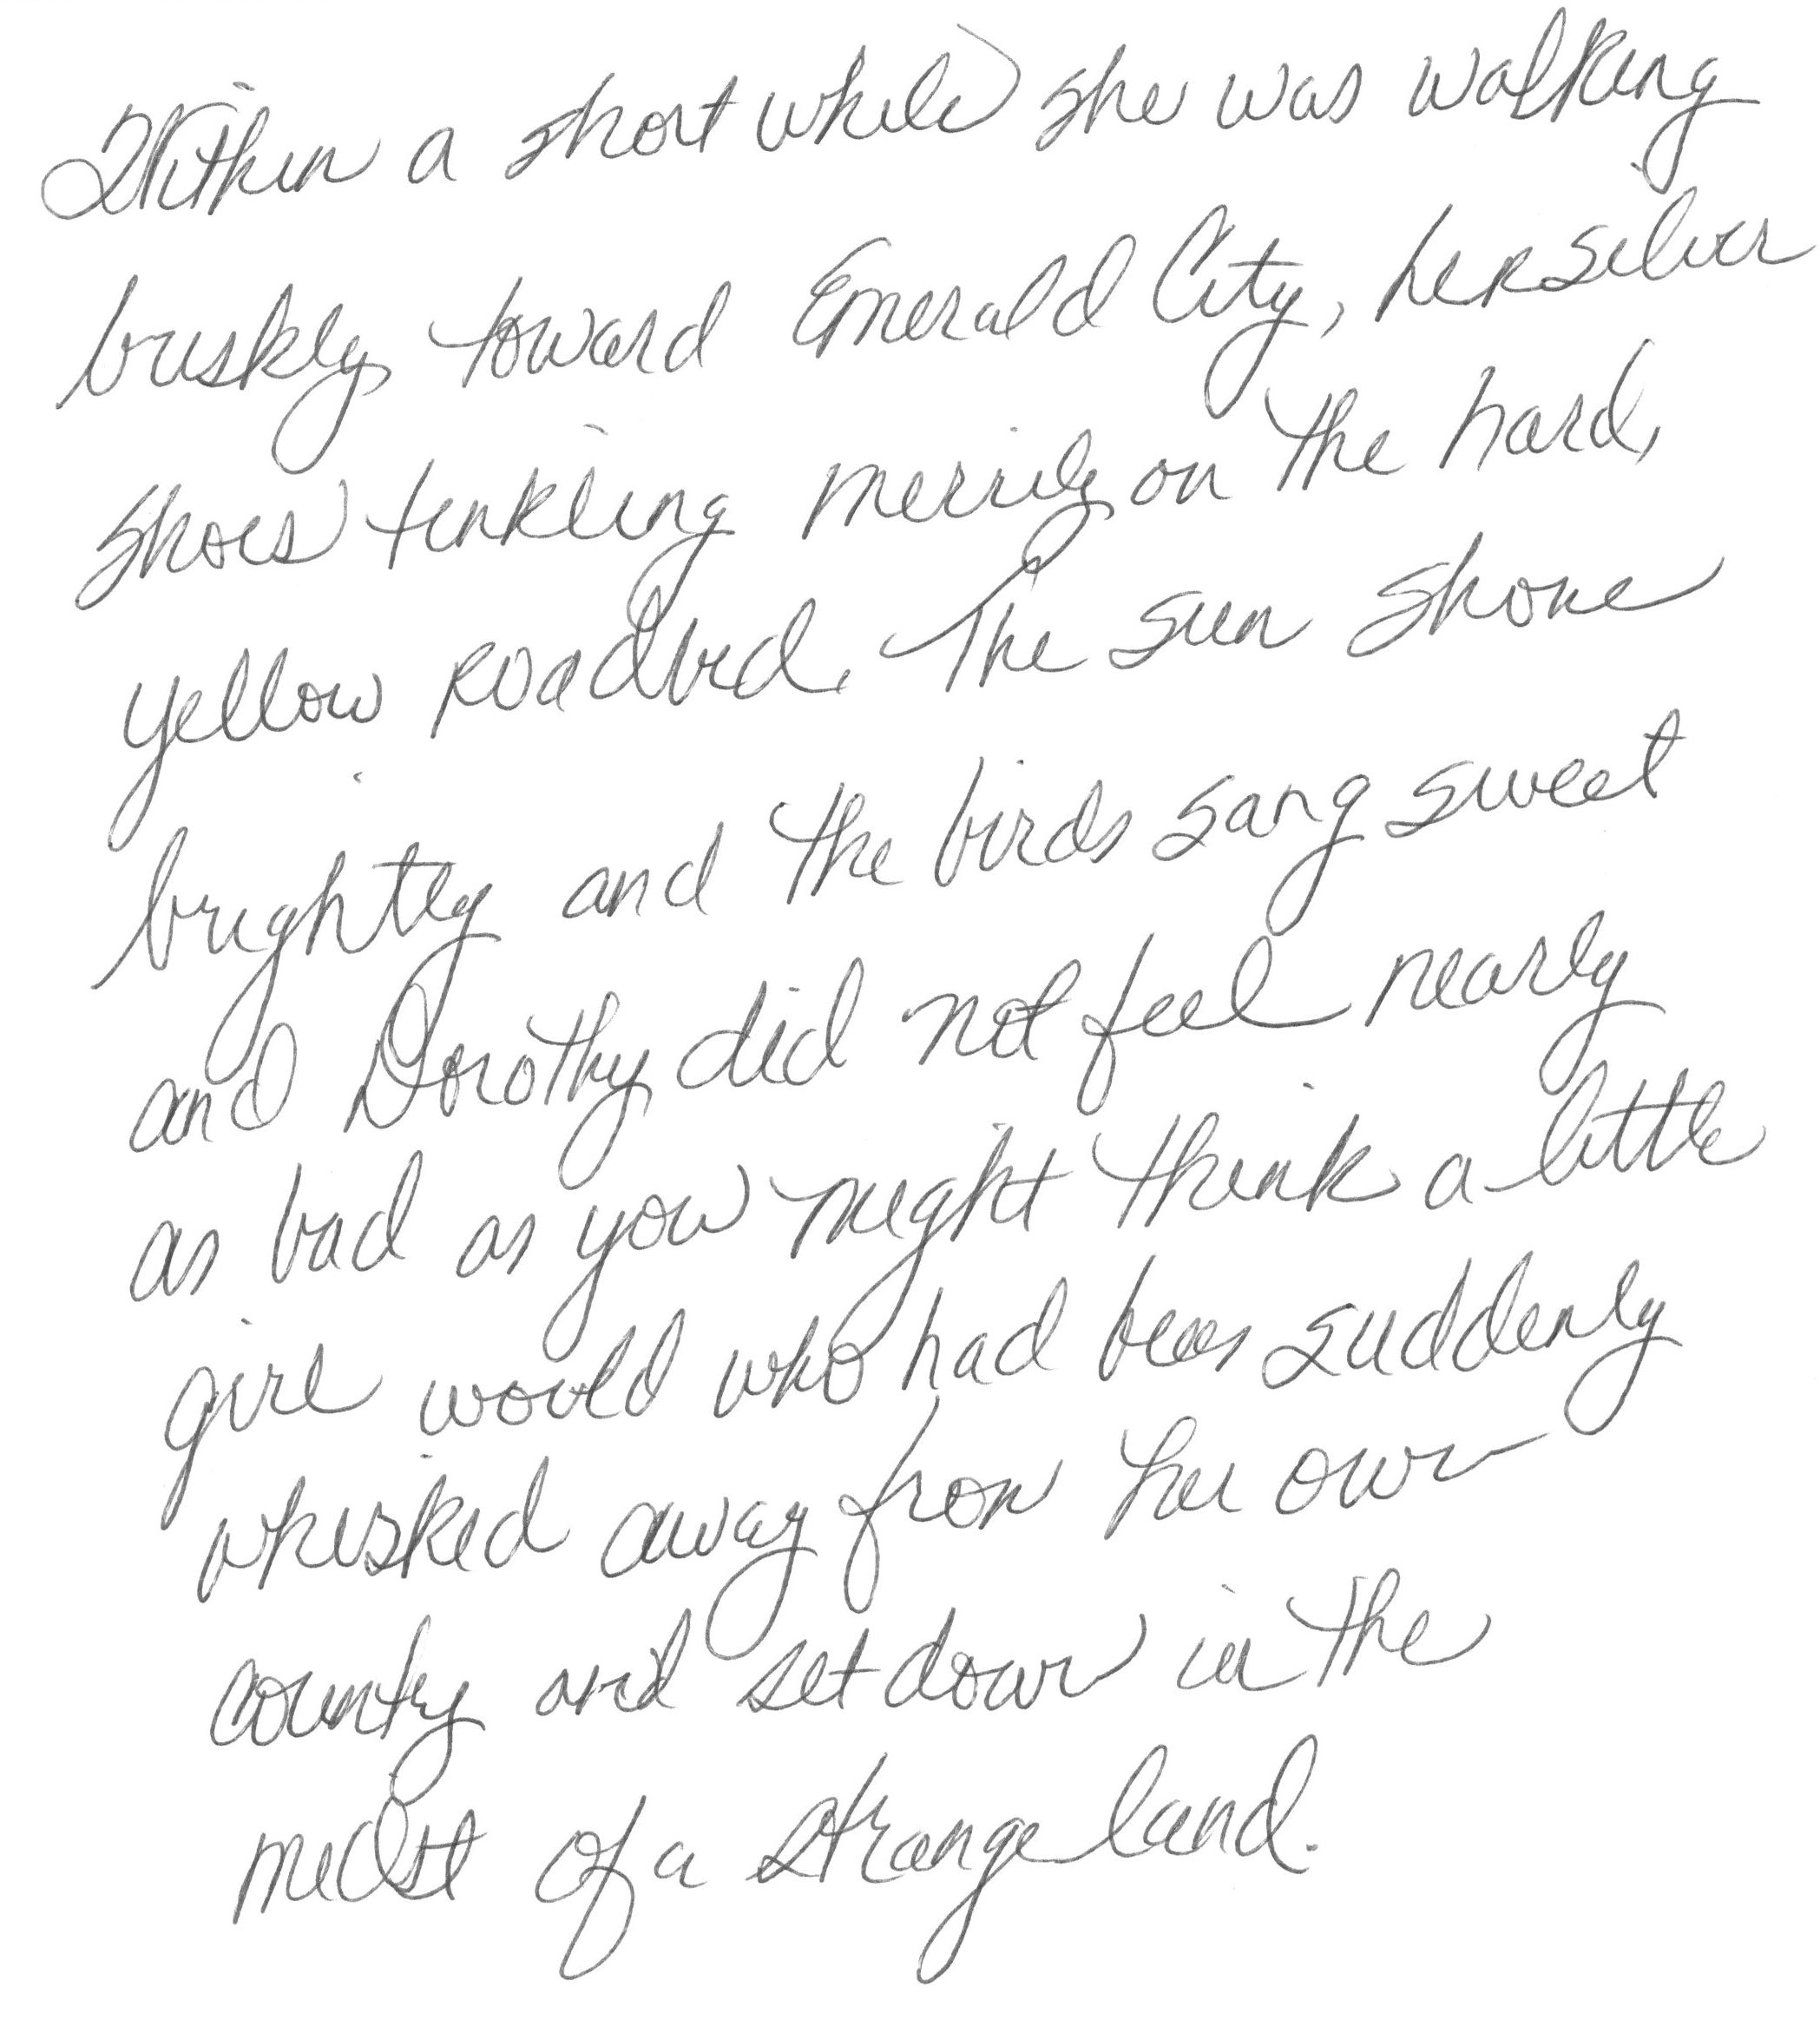 Within a short while she was walking
briskly toward Emerald City, her silver
shoes tinkling merrily on the hard,
yellow roadbed. The sun shone
brightly and the birds sang sweet
and Dorothy did not feel nearly
as bad as you might think a little
girl would who had been suddenly
whisked away from her own
county and set down in the
midst of a strange land.